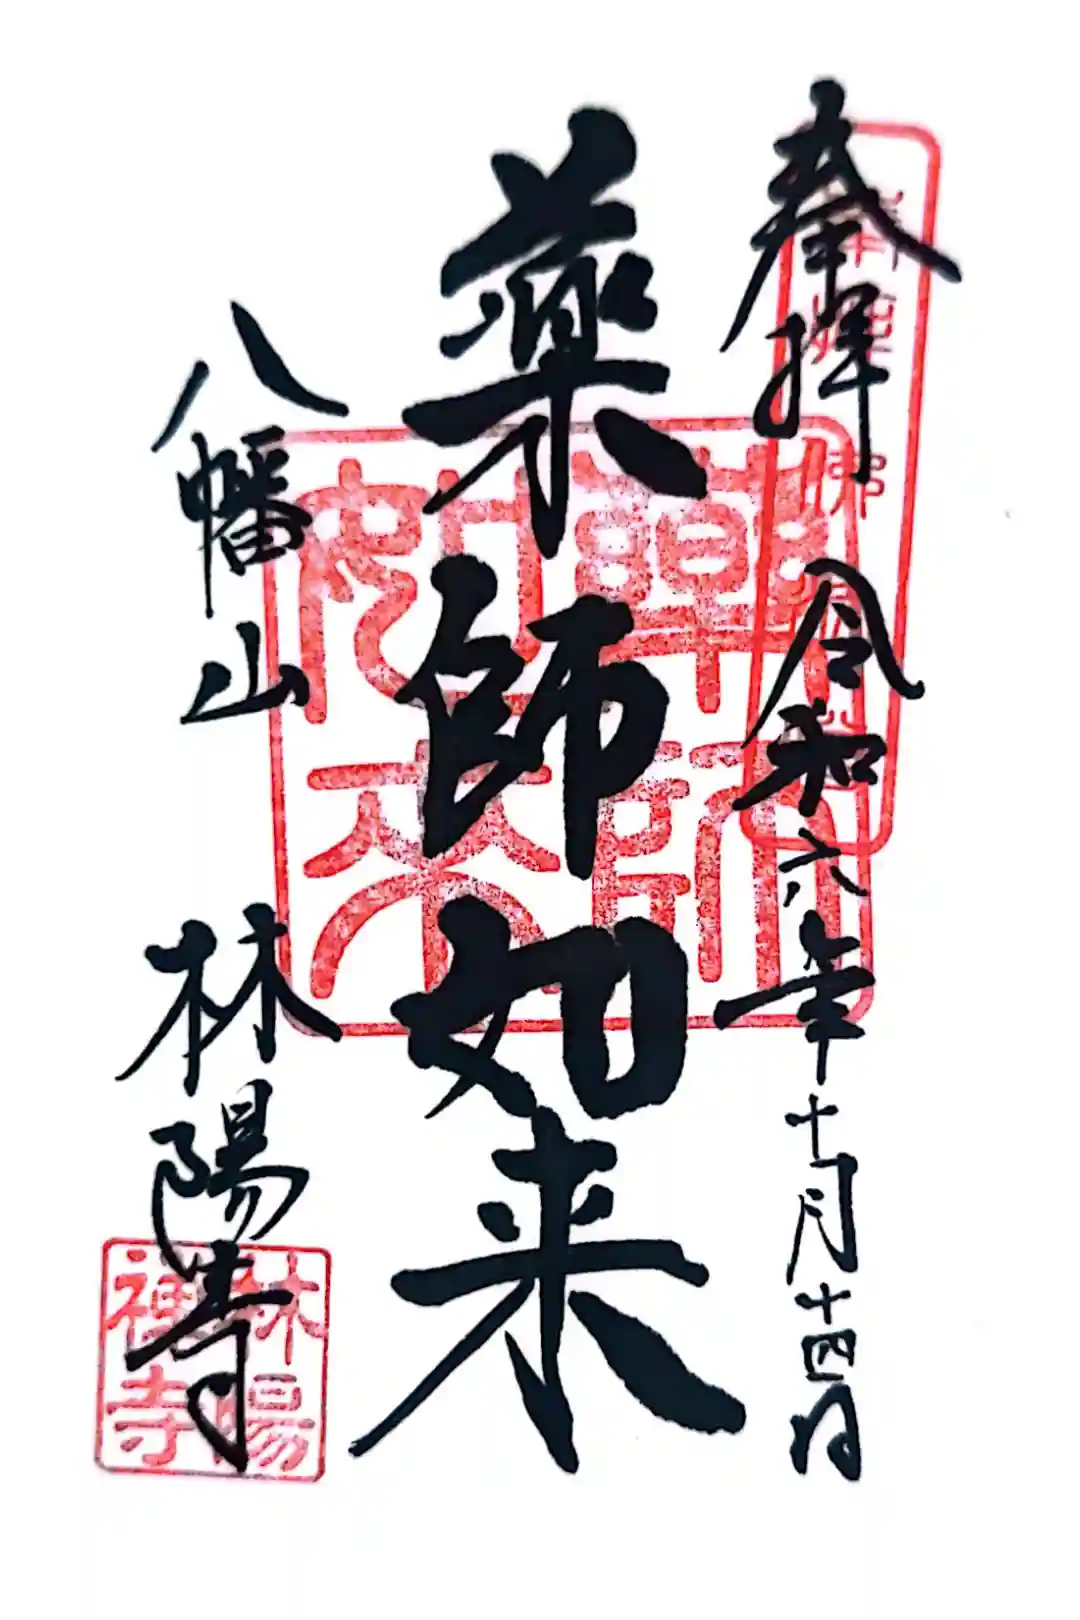 奉拝 令和六年十月十四日
薬師如来
八幡山 林陽寺
薬師如来
林陽禅寺